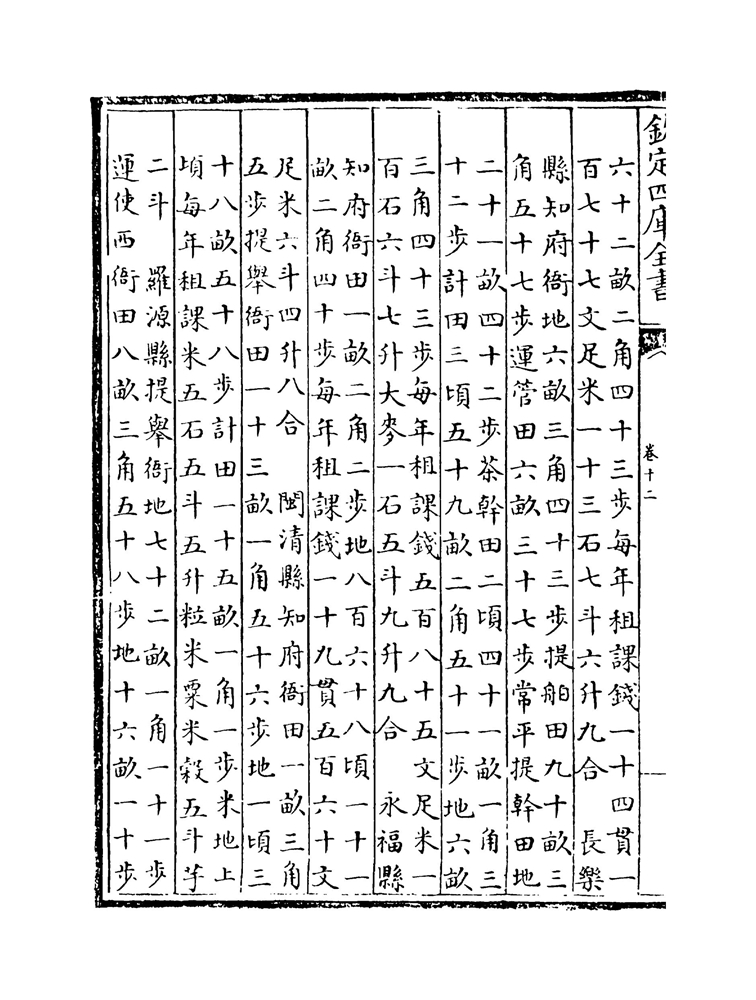 欽定四庫全書
卷十二
六十二畝二角四十三步每年租課錢一十四貫一
百七十七文足米一十三石七斗六升九合　長樂
縣知府衙地六畝三角四十三步提舶田九十畝三
角五十七步運管田六畝三十七步常平提幹田地
二十一畝四十二步茶幹田二頃四十一畝一角三
十二步計田三頃五十九畝二角五十一步地六畝
三角四十三步每年租課錢五百八十五文足米一
百石六斗七升大麥一石五斗九升九合　永福縣
知府衙田一畝二角二步地八百六十八頃一十一
畝二角四十步每年租課錢一十九貫五百六十文
足米六斗四升八合　閩清縣知府衙田一畝三角
五步提舉衙田一十三畝一角五十六步地一頃三
十八畝五十八步計田一十五畝一角一步米地上
頃每年租課米五石五斗五升粒米粟米穀五斗芋
二斗　羅源縣提舉衙地七十二畝一角一十一步
運使西衙田八畝三角五十八步地十六畝一十步